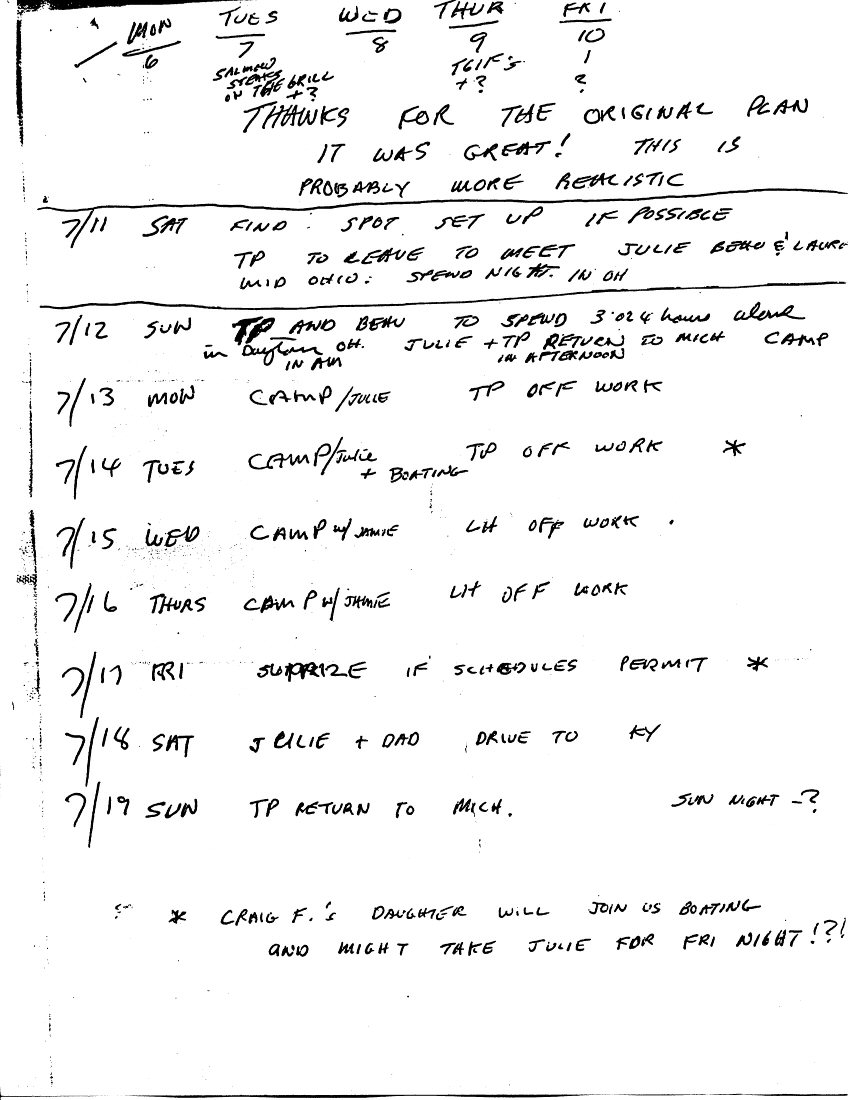 MON TUES WED THUR FRI
6 7 8 9 10
SALMON STEAKS ON THE GRILL + ?
TGIF'S + ?
1 ?
THANKS FOR THE ORIGINAL PLAN
IT WAS GREAT! THIS IS
PROBABLY MORE REALISTIC
7/11 SAT FIND SPOT SET UP IF POSSIBLE
TP TO LEAVE TO MEET JULIE BEAU & LAURE
MID OHIO: SPEND NIGHT. IN OH
7/12 SUN TP AND BEAU TO SPEND 3 or 4 hours alone
in Dayton OH. JULIE + TP RETURN TO MICH CAMP
IN AM IN AFTERNOON
7/13 MON CAMP/JULIE TP OFF WORK
7/14 TUES CAMP/Julie TP OFF WORK *
+ BOATING
7/15 WED CAMP w/ JAMIE LH OFF WORK .
7/16 THURS CAMP w/ JAMIE LH OFF WORK
7/17 FRI SUPRIZE IF SCHEDULES PERMIT *
7/18 SAT JULIE + DAD DRIVE TO KY
7/19 SUN TP RETURN TO MICH. SUN NIGHT - ?
* CRAIG F.'s DAUGHTER WILL JOIN US BOATING
AND MIGHT TAKE JULIE FOR FRI NIGHT!?!